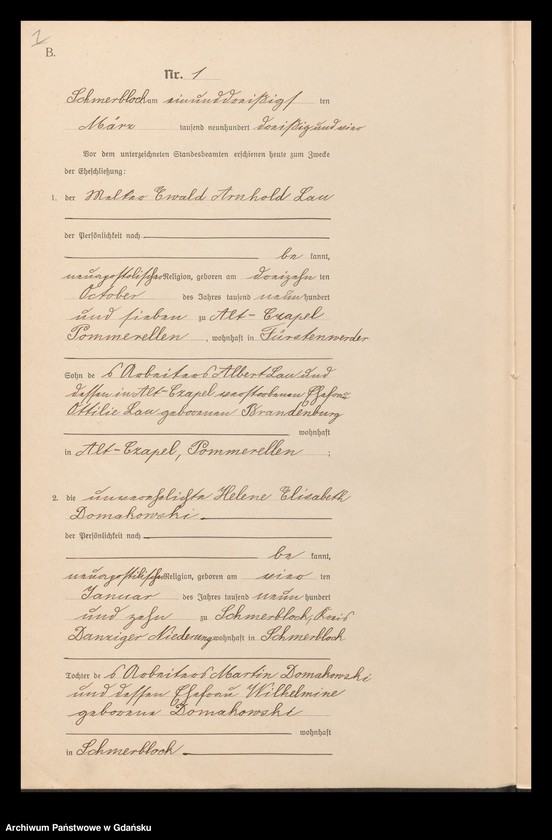 1
B.
Nr. 1
Schmerblock am einunddreißigs ten
März tausend neunhundert dreißig und vier
Vor dem unterzeichneten Standesbeamten erschienen heute zum Zwecke
der Eheschließung:
1. der Melker Ewald Arnhold Lau
der Persönlichkeit nach
be kannt,
neuapostolischer Religion, geboren am dreizehn ten
October des Jahres tausend neun hundert
und sieben zu Alt-Czapel
Pommerellen, wohnhaft in Fürstenwerder
Sohn des Arbeiters Albert Lau und
dessen in Alt-Czapel verstorbenen Ehefrau
Ottilie Lau geborenen Brandenburg
wohnhaft
in Alt-Czapel, Pommerellen ;
2. die unverehelichte Helene Elisabeth
Domakowski
der Persönlichkeit nach
be kannt,
neuapostolischer Religion, geboren am vier ten
Januar des Jahres tausend neun hundert
und zehn zu Schmerblock, Kreis
Danziger Niederung wohnhaft in Schmerblock
Tochter des Arbeiters Martin Domakowski
und dessen Ehefrau Wilhelmine
geborene Domakowski
wohnhaft
in Schmerblock
Archiwum Państwowe w Gdańsku